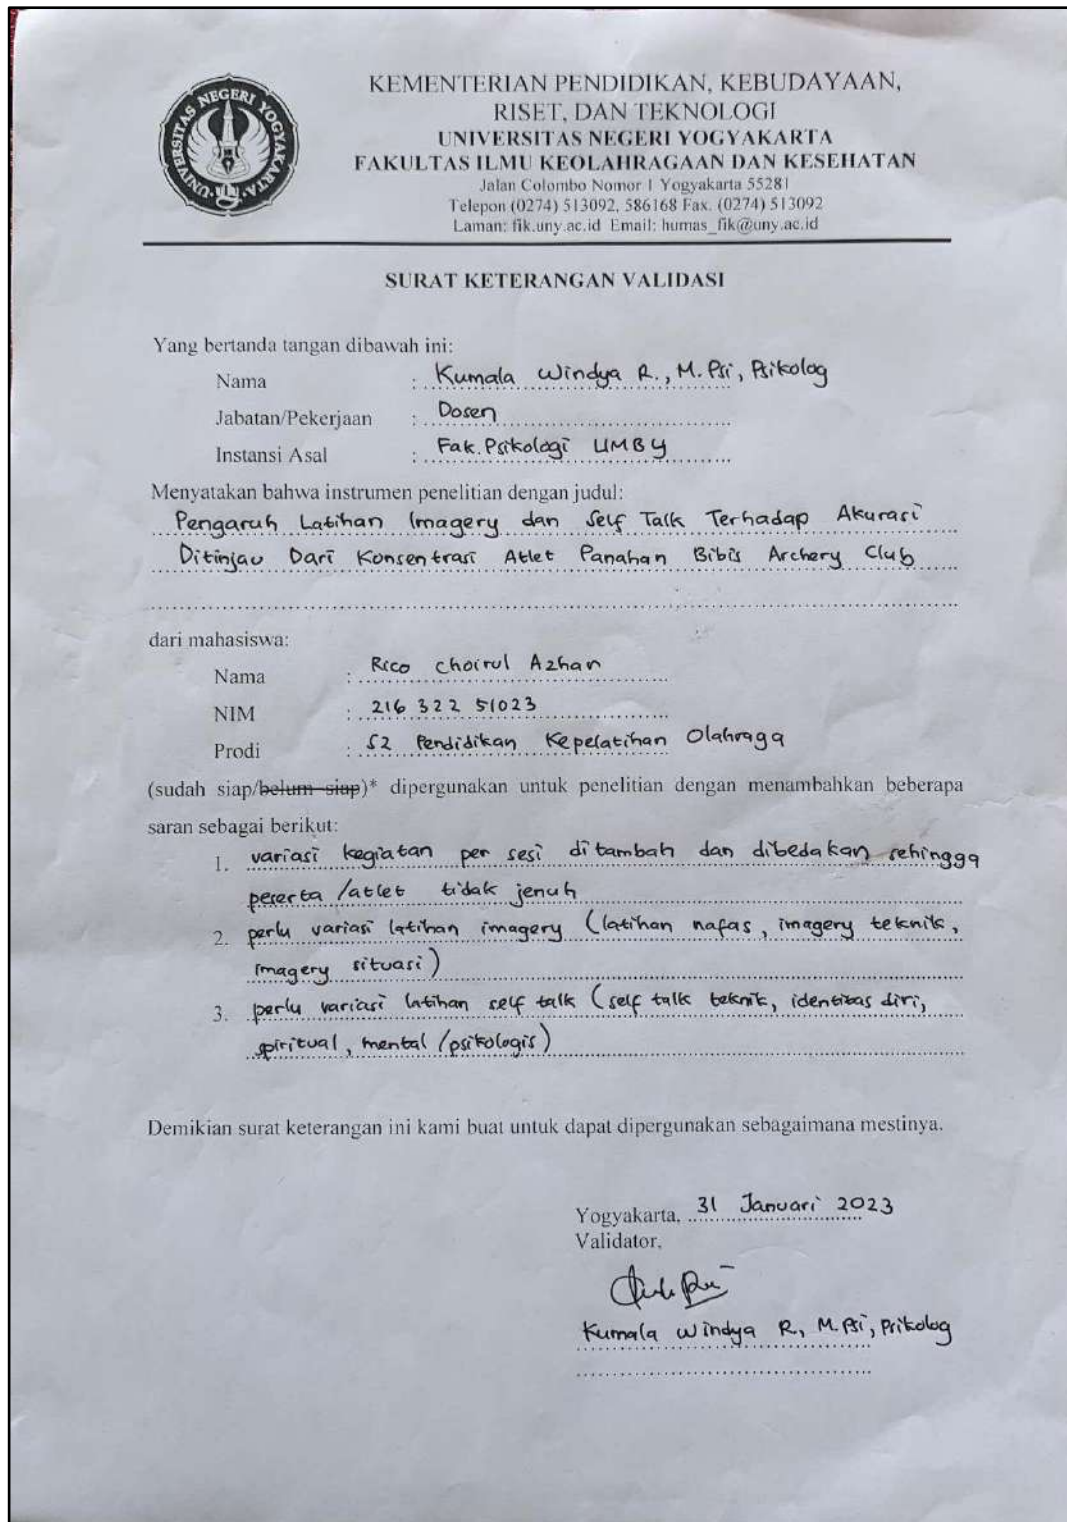 UNIVERSITAS NEGERI YOGYAKARTA
KEMENTERIAN PENDIDIKAN, KEBUDAYAAN,
RISET, DAN TEKNOLOGI
UNIVERSITAS NEGERI YOGYAKARTA
FAKULTAS ILMU KEOLAHRAGAAN DAN KESEHATAN
Jalan Colombo Nomor 1 Yogyakarta 55281
Telepon (0274) 513092, 586168 Fax. (0274) 513092
Laman: fik.uny.ac.id Email: humas_fik@uny.ac.id
SURAT KETERANGAN VALIDASI
Yang bertanda tangan dibawah ini:
Nama : Kumala Windya R., M.Psi, Psikolog
Jabatan/Pekerjaan : Dosen
Instansi Asal : Fak. Psikologi UMBY
Menyatakan bahwa instrumen penelitian dengan judul:
Pengaruh Latihan Imagery dan Self Talk Terhadap Akurasi
Ditinjau Dari Konsentrasi Atlet Panahan Bibis Archery Club
dari mahasiswa:
Nama : Rico Choirul Azhan
NIM : 216 322 51023
Prodi : S2 Pendidikan Kepelatihan Olahraga
(sudah siap/belum siap)* dipergunakan untuk penelitian dengan menambahkan beberapa
saran sebagai berikut:
1. variasi kegiatan per sesi ditambah dan dibedakan sehingga
peserta /atlet tidak jenuh
2. perlu variasi latihan imagery (latihan nafas, imagery teknik,
imagery situasi)
3. perlu variasi latihan self talk (self talk teknik, identitas diri,
spiritual, mental /psikologis)
Demikian surat keterangan ini kami buat untuk dapat dipergunakan sebagaimana mestinya.
Yogyakarta, 31 Januari 2023
Validator,
Kumala Windya R, M.Psi, Psikolog